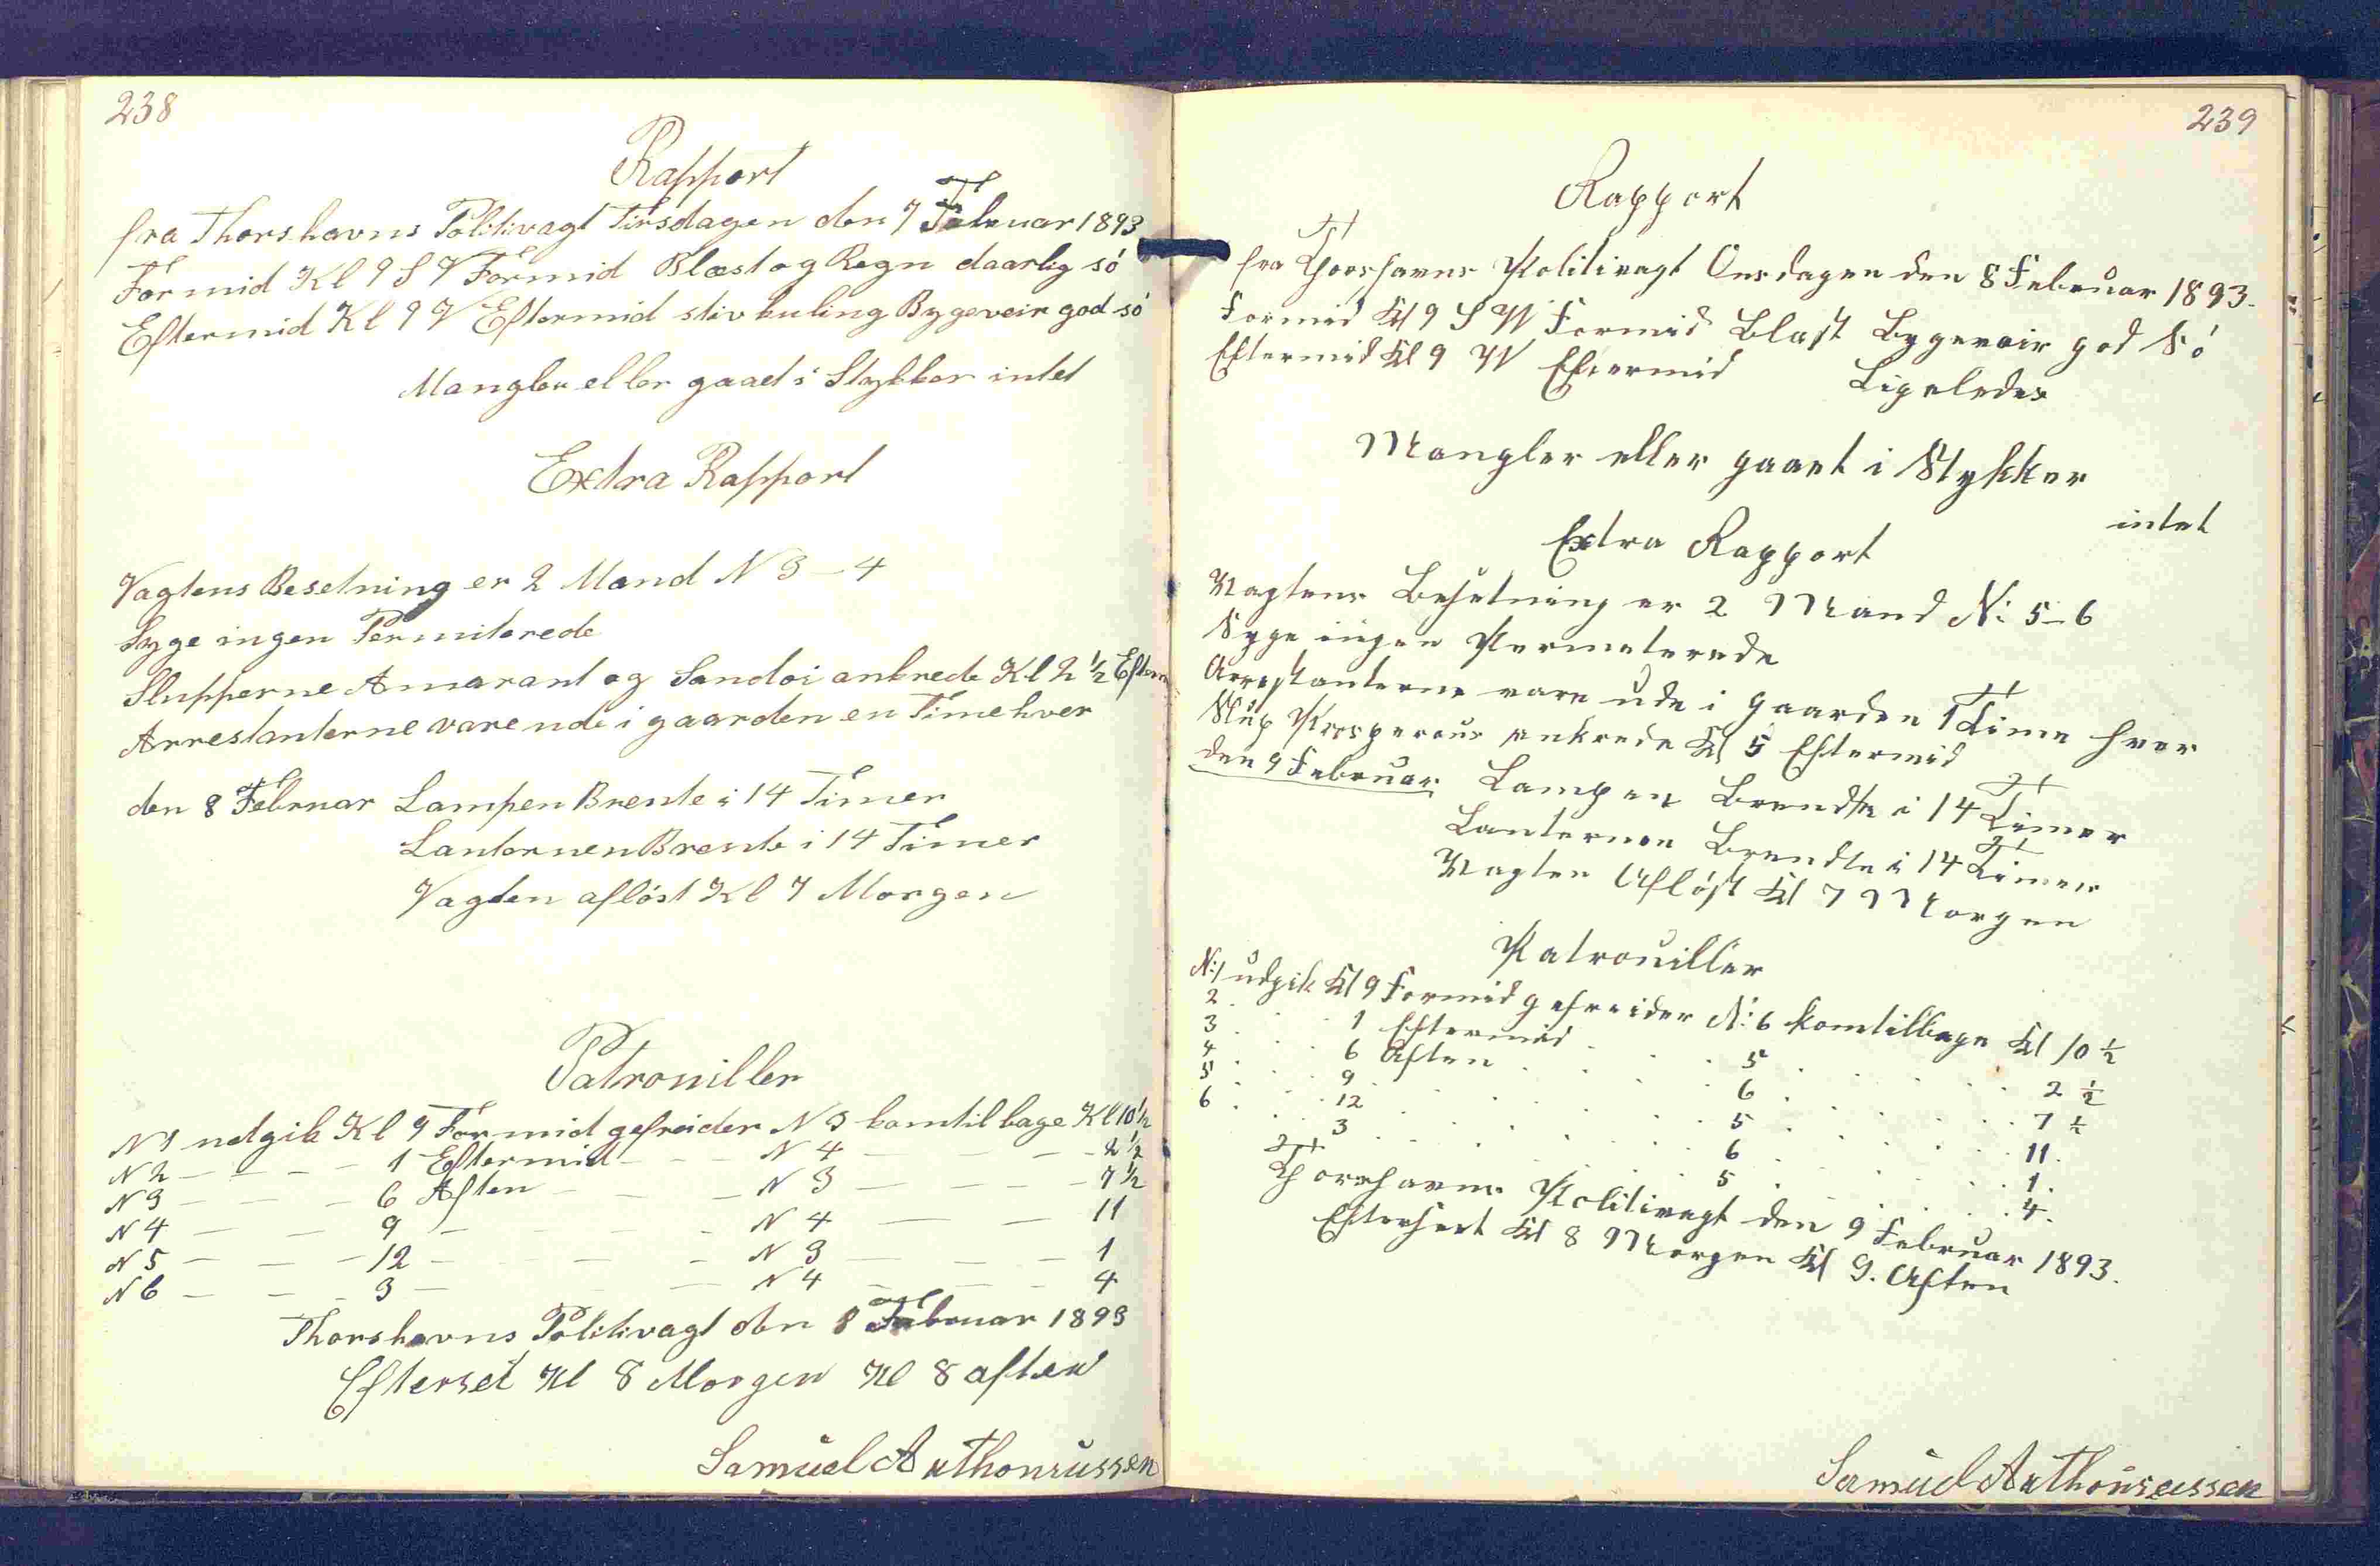 238
Rapport
fra Thorshavns Politivagt Tirsdagen den 7 Februar 1893
Formid Kl 9 S V Formid Blæst og Regn daarlig só
Eftermid Kl 9 V Eftermid stiv kuling Bygeveir god só
Mangler eller gaaet i Stykker intet
Extra Rapport
Vagtens Besetning er 2 Mand N 3 – 4
Syge ingen Permiterede
Slupperne Amarant og Sandoi ankrede Kl 2 ½ Efterm
Arrestanterne vare ude i gaarden en Time hver
den 8 Februar Lampen Brente i 14 Timer
Lanternen Brente i 14 Timer
Vagten aflöst Kl 7 Morgen
Patrouiller
N 1 udgik Kl 9 Formid gefreider N 3 kom tilbage Kl 10½
N 2 – – – – 1 Eftermid – – – N 4 – – – – 2½
N 3 – – – 6 Aften – – – N 3 – – – – 7½
N 4 – – – 9 – – – – N 4 – – 11
N 5 – – – 12 – – – – N 3 – – – 1
N 6 – – – 3 – – – N 4 – – – 4
Thorshavns Politivagt den 8 Februar 1893
Efterset Kl 8 Morgen Kl 8 aften
Samuel Anthoniussen
239
Rapport
fra Thorshavns Politivagt Onsdagen den 8 Februar 1893.
Formid Kl 9 S W Formid Blast Bygevair god Só
Eftermid Kl 9 W Eftermid Ligeledes
Mangler eller gaaet i Stykker
intet
Extra Rapport
Vagtens Besetning er 2 Mand N: 5–6
Syge ingen Permeterede
Arrestanterne vare ude i gaarden 1 Time hver
Slup Prosperous ankrede Kl 5 Eftermid
den 9 Februar. Lampen Brendte i 14 Timer
Lanternen Brendte i 14 Timer
Vagten Aflóst Kl 7 Morgen
Patrouiller
N: 1 udgik Kl 9 Formid gefreider N: 6 kom tilbage Kl 10 ½
2 . . . 1 Eftermid . . . 5 . . . . 2 ½
3 . . . 6 Aften . . . 6 . . . . 7 ½
4 . . . 9 . . . . 5 . . . . 11.
5 . . . 12 . . . . 6 . . . . 1.
6 . . . 3 . . . . 5 . . . . 4.
Thorshavns Politivagt den 9 Februar 1893.
Efterseet Kl 8 Morgen Kl 9. Aften
Samuel Anthoniussen